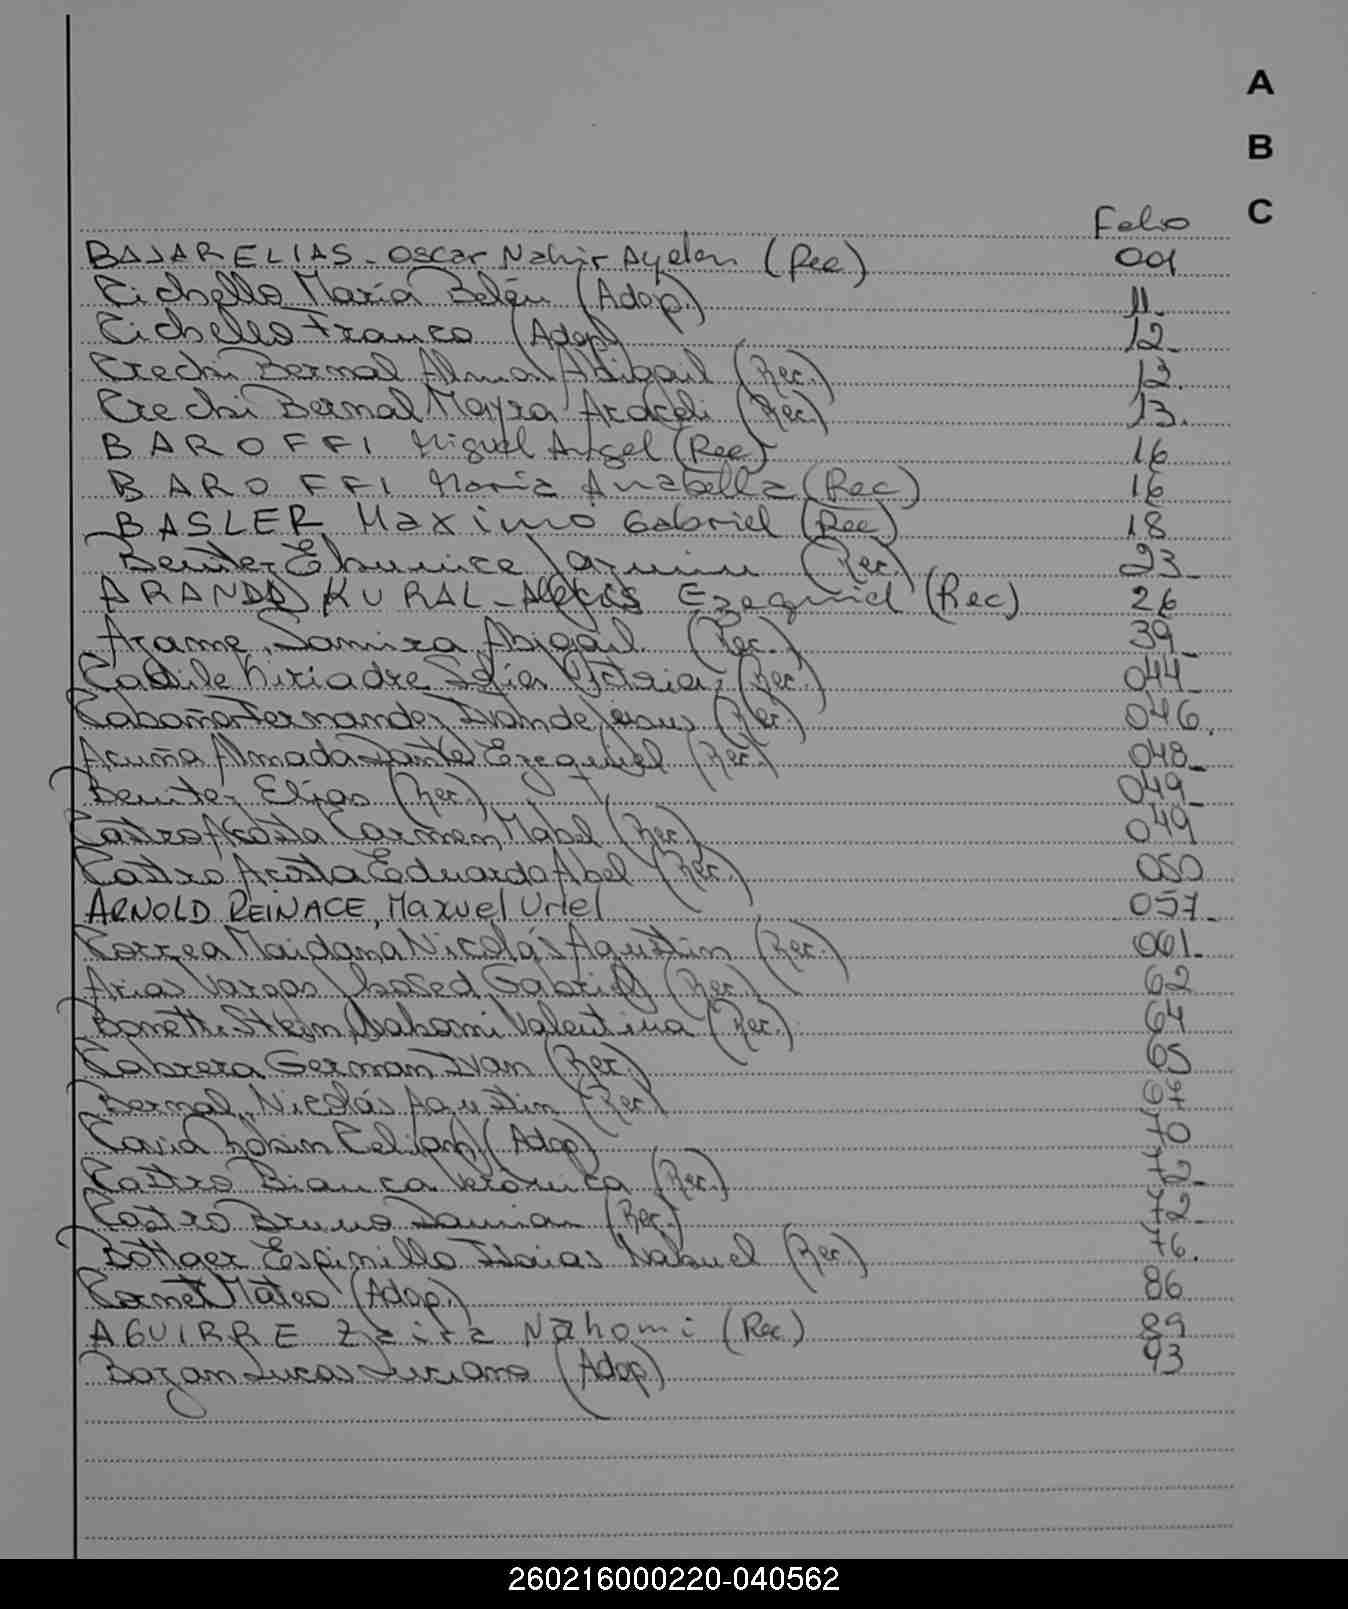 A
B
C
Folio
BAJARELIAS - Oscar Nahir Ayelen (Rec) 001
Cichello María Belén (Adop.) 11
Cichello Franco (Adop) 12
Crechi Bernal Alma Abigail (Rec.) 12
Crechi Bernal Mayra Araceli (Rec) 13.
BAROFFI Miguel Angel (Rec) 16
BAROFFI Maria Anabella (Rec) 16
BASLER Maximo Gabriel (Rec) 18
Benitez (Rec.) 23
ARANDA KURAL - Alexis Ezequiel (Rec) 26
Arame, Samira Abigail (Rec.) 39
Sofía Victoria (Rec.) 044
Cabaña Fernandez Ivan de Jesus (Rec.) 046.
Acuña Almada Dante Ezequiel (Rec.) 048
Benitez Elías (Rec.) 049
Castro Acosta Carmen Mabel (Rec) 049
Castro Acosta Eduardo Abel (Rec.) 050
ARNOLD REINACE, Maxuel Uriel 057
Correa Maidana Nicolás Agustin (Rec.) 061
Arias Vargas Gabriel (Rec.) 62
Bonetti Stein Nahomi Valentina (Rec.) 64
Cabrera German Ivan (Rec.) 65
Bernal, Nicolás Agustin (Rec) 67
(Adop) 70
Castro Bianca Veronica (Rec.) 72
Castro Bruno Damian (Rec.) 72
Bottger Espinillo Isaias Nahuel (Rec.) 76.
Cornet Mateo (Adop.) 86
AGUIRRE Zaira Nahomi (Rec) 89
Bazan Lucas Luciano (Adop) 93
260216000220-040562